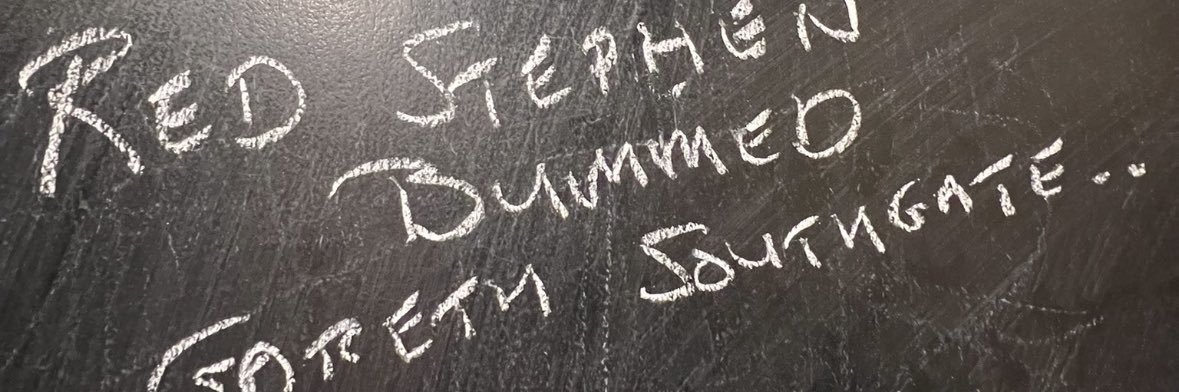 RED STEPHEN
BUMMED
GARETH SOUTHGATE..